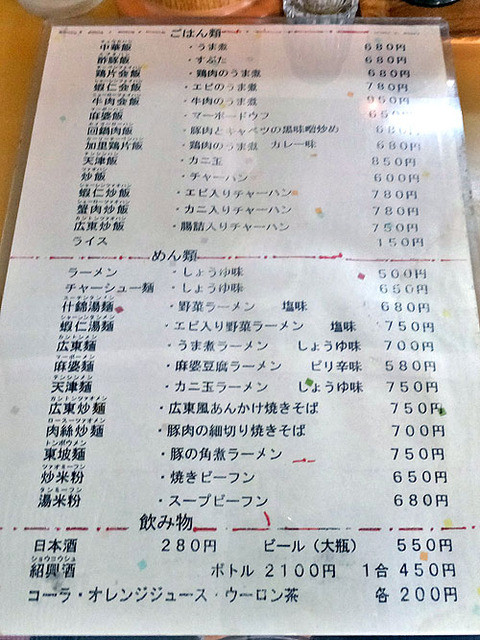 ごはん類
中華飯 ・うま煮 680円
酢豚飯 ・すぶた 680円
鶏片会飯 ・鶏肉のうま煮 680円
蝦仁会飯 ・エビのうま煮 780円
牛肉会飯 ・牛肉のうま煮 950円
麻婆飯 ・マーボードウフ 650円
回鍋肉飯 ・豚肉とキャベツの黒味噌炒め 680円
加里鶏片飯 ・鶏肉のうま煮 カレー味 680円
天津飯 ・カニ玉 850円
炒飯 ・チャーハン 600円
蝦仁炒飯 ・エビ入りチャーハン 780円
蟹肉炒飯 ・カニ入りチャーハン 780円
広東炒飯 ・腸詰入りチャーハン 750円
ライス 150円
めん類
ラーメン ・しょうゆ味 500円
チャーシュー麺 ・しょうゆ味 650円
什錦湯麺 ・野菜ラーメン 塩味 680円
蝦仁湯麺 ・エビ入り野菜ラーメン 塩味 750円
広東麺 ・うま煮ラーメン しょうゆ味 700円
麻婆麺 ・麻婆豆腐ラーメン ピリ辛味 580円
天津麺 ・カニ玉ラーメン しょうゆ味 750円
広東炒麺 ・広東風あんかけ焼きそば 750円
肉絲炒麺 ・豚肉の細切り焼きそば 700円
東坡麺 ・豚の角煮ラーメン 750円
炒米粉 ・焼きビーフン 650円
湯米粉 ・スープビーフン 680円
飲み物
日本酒 280円 ビール（大瓶） 550円
ショウコウシュ
紹興酒 ボトル 2100円 1合 450円
コーラ・オレンジジュース・ウーロン茶 各 200円